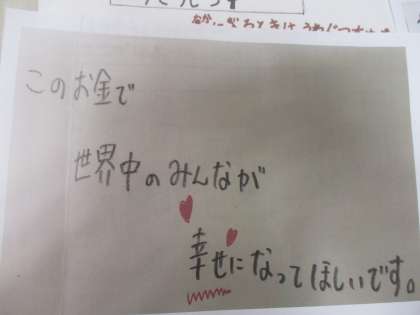 このお金で
世界中のみんなが
幸せになってほしいです。